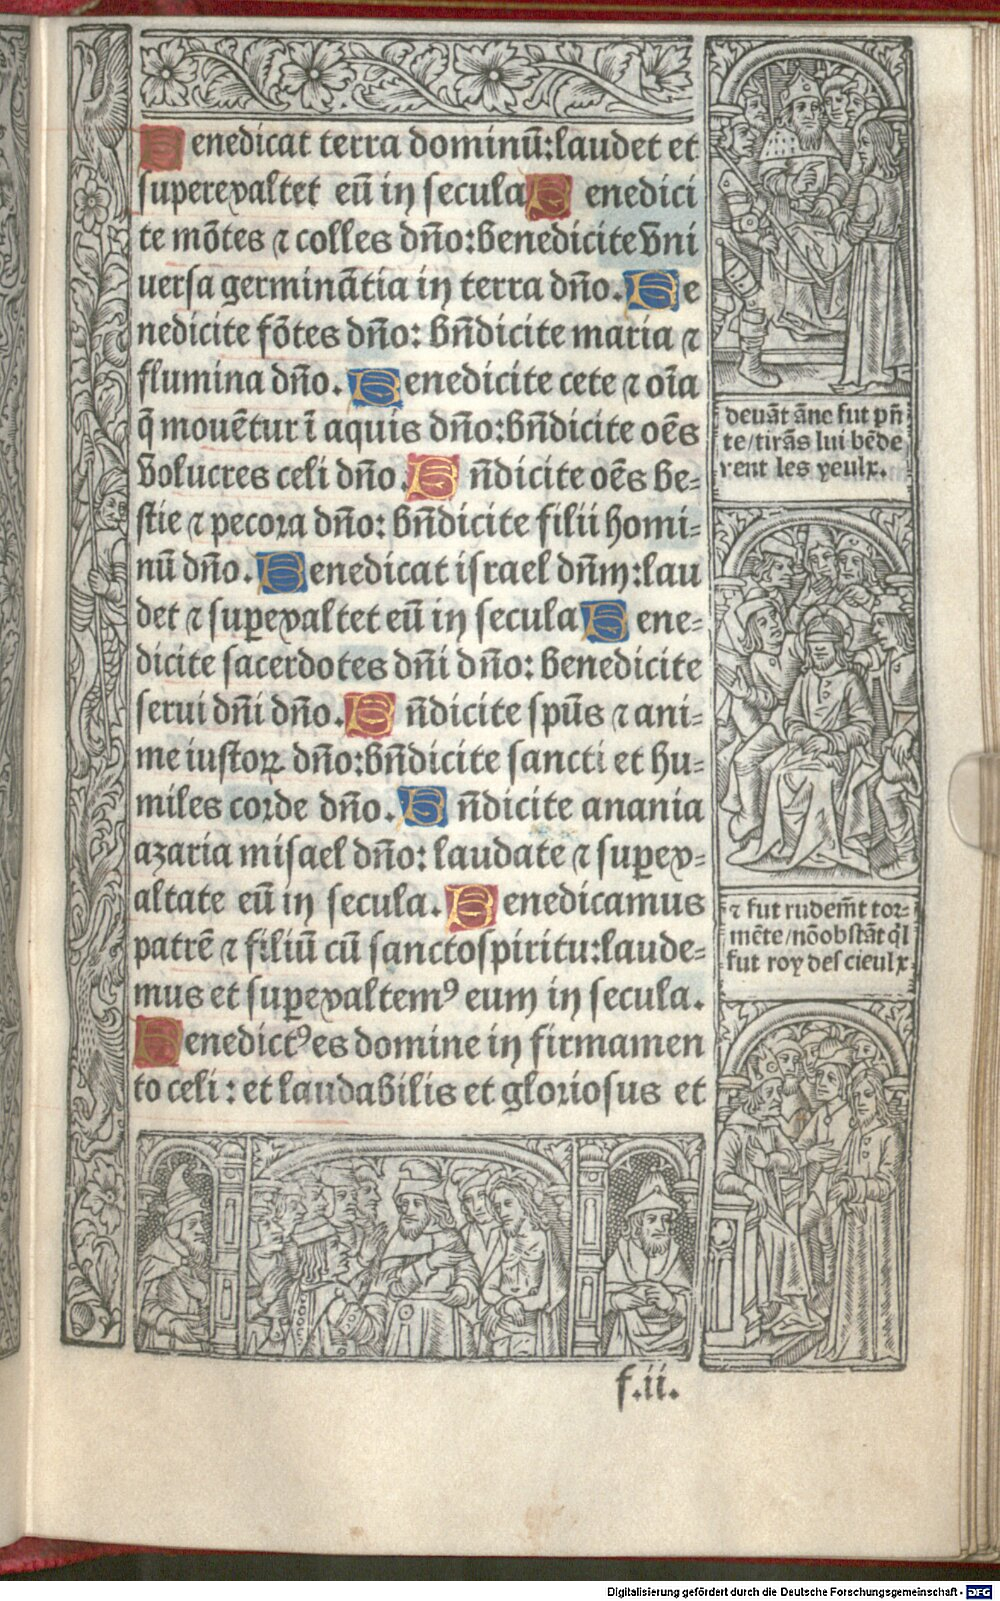 Benedicat terra dominū: laudet et
superexaltet eū in secula Benedici
te mōtes ⁊ colles dño: benedicite vni
uersa germinātia in terra dño. Be
nedicite fōtes dño: bñdicite maria ⁊
flumina dño. Benedicite cete ⁊ oīa
q̄ mouētur ī aquis dño: bñdicite oēs
volucres celi dño. Bñdicite oēs be=
stie ⁊ pecora dño: bñdicite filii homi=
nū dño. Benedicat israel dñm: lau
det ⁊ suꝑexaltet eū in secula Bene=
dicite sacerdotes dñi dño: benedicite
serui dñi dño. Bñdicite spūs ⁊ ani=
me iustoꝝ dño: bñdicite sancti et hu=
miles corde dño. Bñdicite anania
azaria misael dño: laudate ⁊ suꝑex=
altate eū in secula. Benedicamus
patrē ⁊ filiū cū sanctospiritu: laude=
mus et suꝑexaltemꝰ eum in secula.
Benedictꝰ es domine in firmamen
to celi: et laudabilis et gloriosus et
deuāt āne fut pñ
te/tirās lui bēde
rent les yeulx.
⁊ fut rudem̄t tor=
mēte/nōobstāt ql̄
fut roy des cieulx
f.ii.
Digitalisierung gefördert durch die Deutsche Forschungsgemeinschaft - DFG